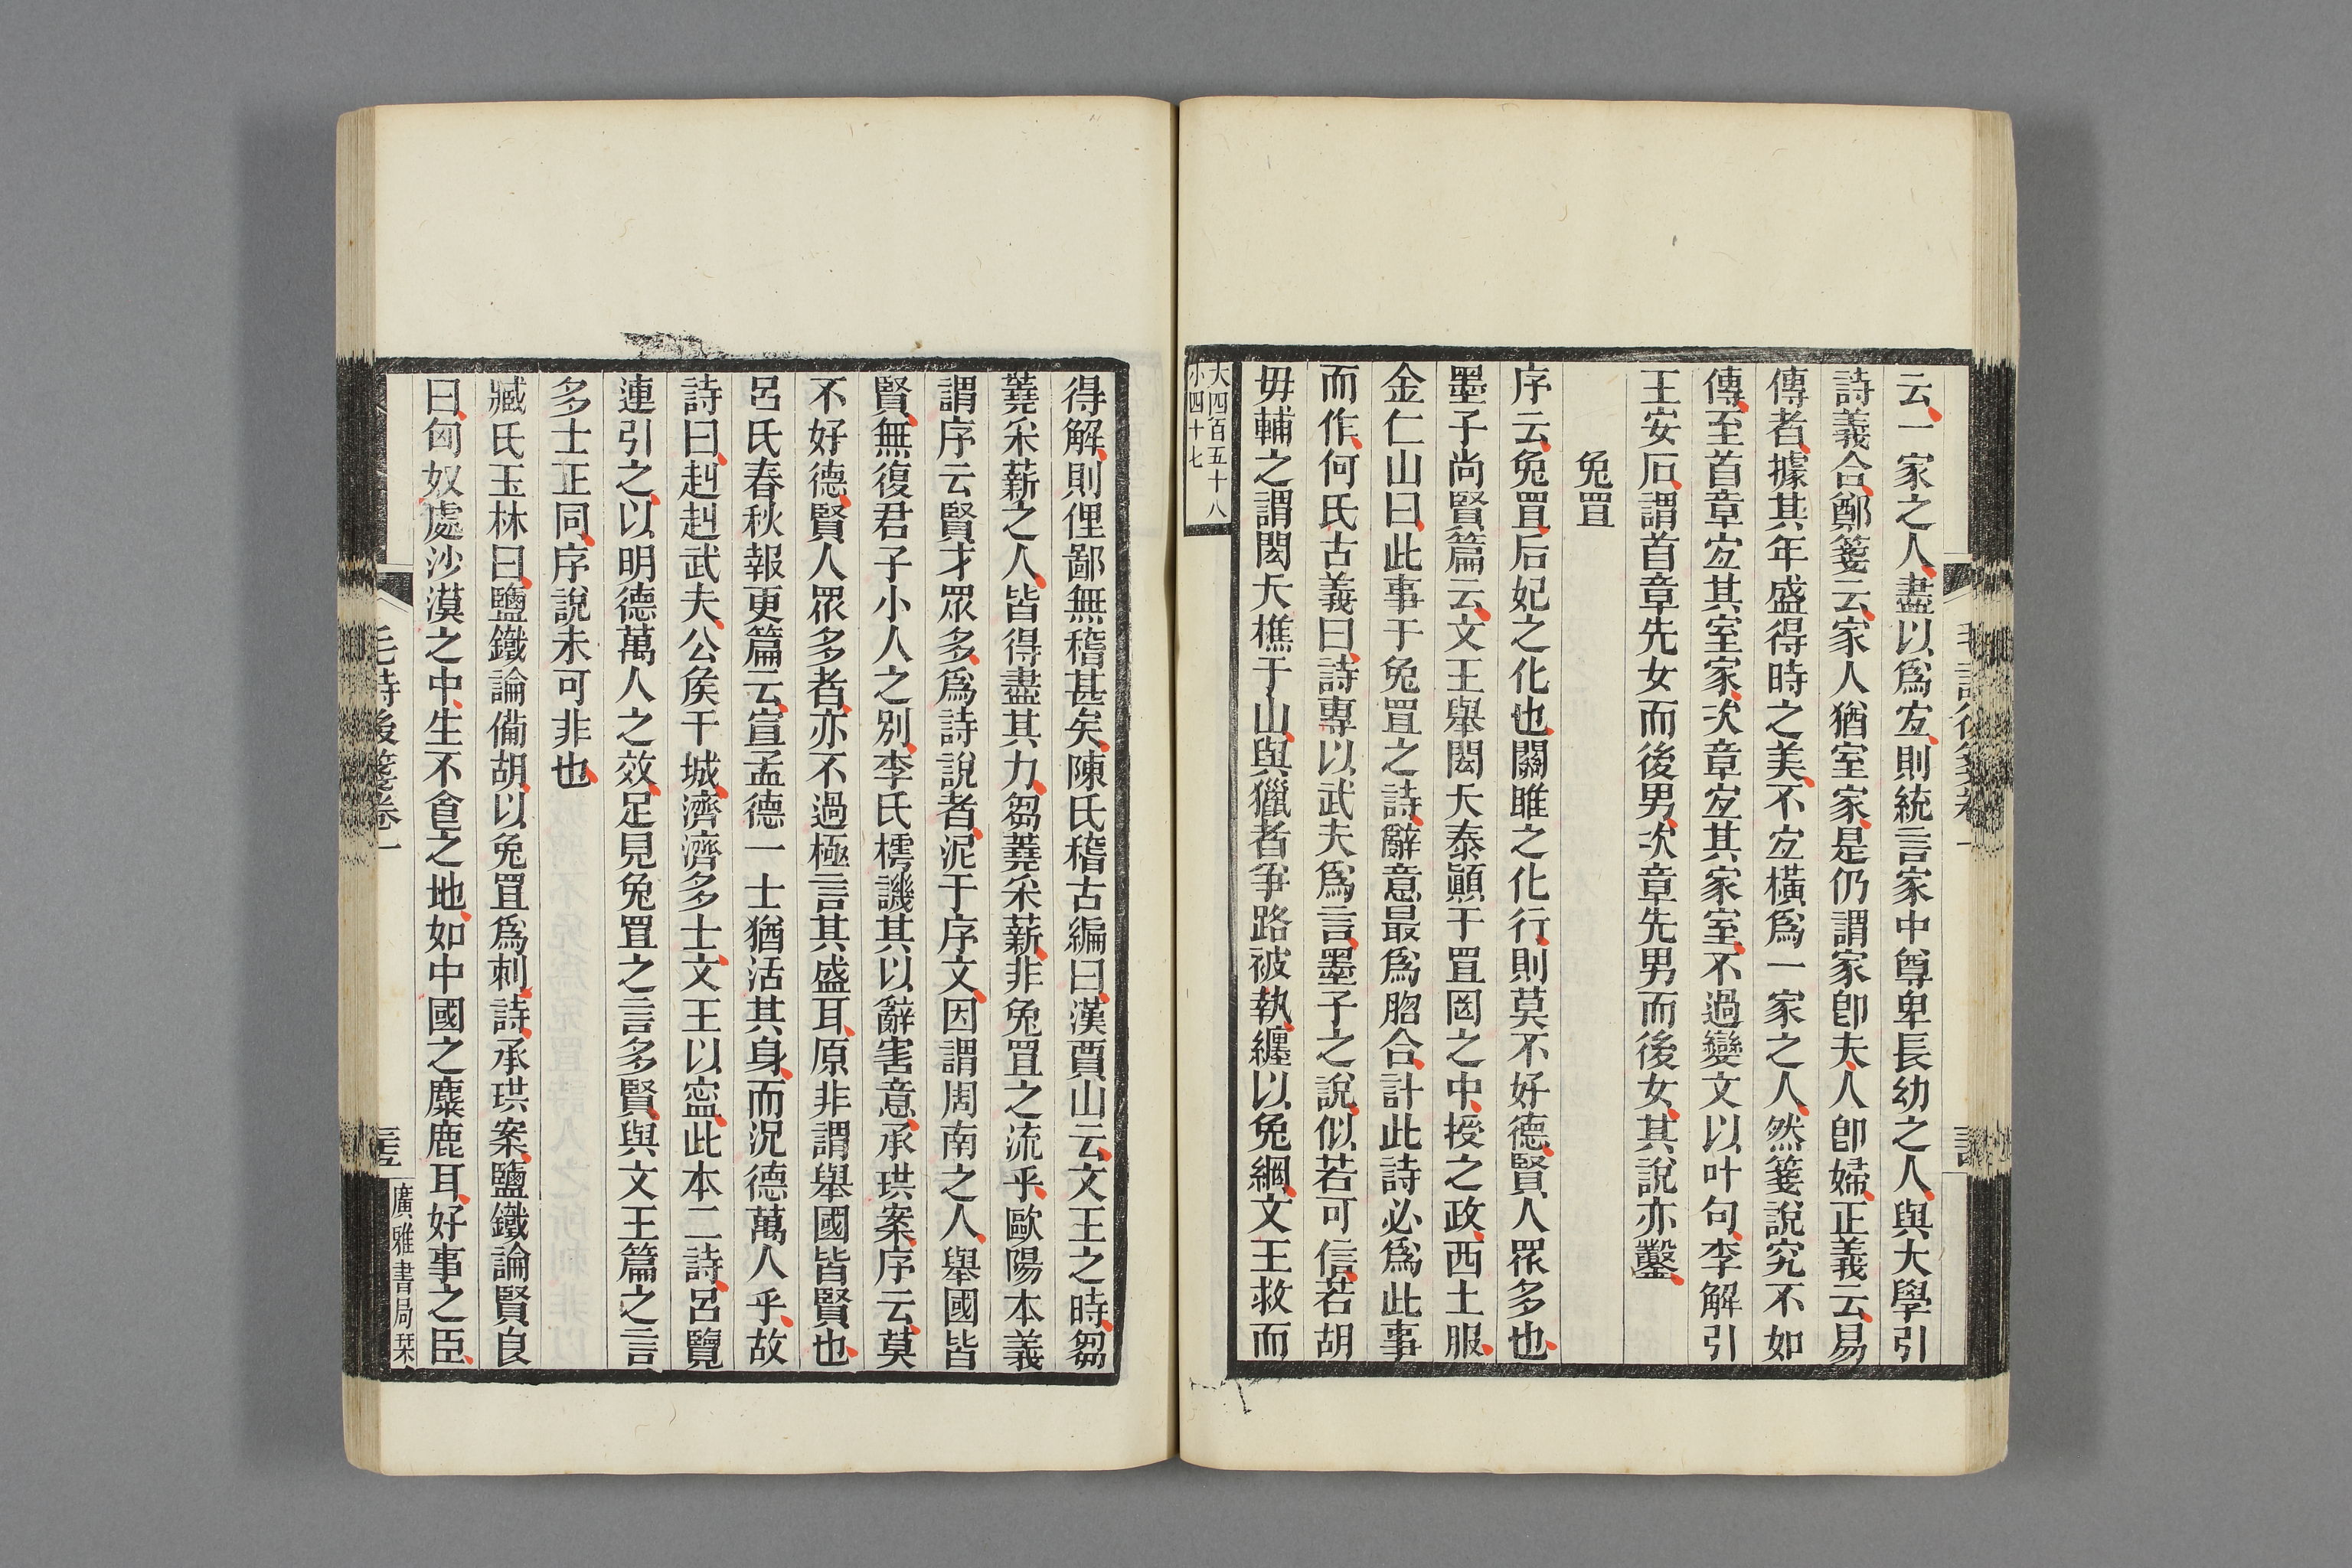 云一家之人盡以爲宐則統言家中尊卑長幼之人與大學引
詩義合鄭箋云家人猶室家是仍謂家卽夫人卽婦正義云易
傳者據其年盛得時之美不宐橫爲一家之人然箋說究不如
傳至首章宐其室家次章宐其家室不過變文以叶句李解引
王安石謂首章先女而後男次章先男而後女其說亦鑿
兔罝
序云兔罝后妃之化也關雎之化行則莫不好德賢人眾多也
墨子尚賢篇云文王舉閎夭泰顚于罝罔之中授之政西土服
金仁山曰此事于兔罝之詩辭意最爲脗合計此詩必爲此事
而作何氏古義曰詩專以武夫爲言墨子之說似若可信若胡
毋輔之謂閎夭樵于山與獵者爭路被執纏以兔綱文王救而
大四百五十八
小四十七
得解則俚鄙無稽甚矣陳氏稽古編曰漢賈山云文王之時芻
蕘采薪之人皆得盡其力芻蕘采薪非兔罝之流乎歐陽本義
謂序云賢才眾多爲詩說者泥于序文因謂周南之人舉國皆
賢無復君子小人之別李氏樗譏其以辭害意承珙案序云莫
不好德賢人眾多者亦不過極言其盛耳原非謂舉國皆賢也
呂氏春秋報更篇云宣孟德一士猶活其身而況德萬人乎故
詩曰赳赳武夫公矦干城濟濟多士文王以寍此本二詩呂覽
連引之以明德萬人之效足見兔罝之言多賢與文王篇之言
多士正同序說未可非也
臧氏玉林曰鹽鐵論備胡以兔罝爲刺詩承珙案鹽鐵論賢良
曰匈奴處沙漠之中生不食之地如中國之麋鹿耳好事之臣
毛詩後箋卷一
廣雅書局栞